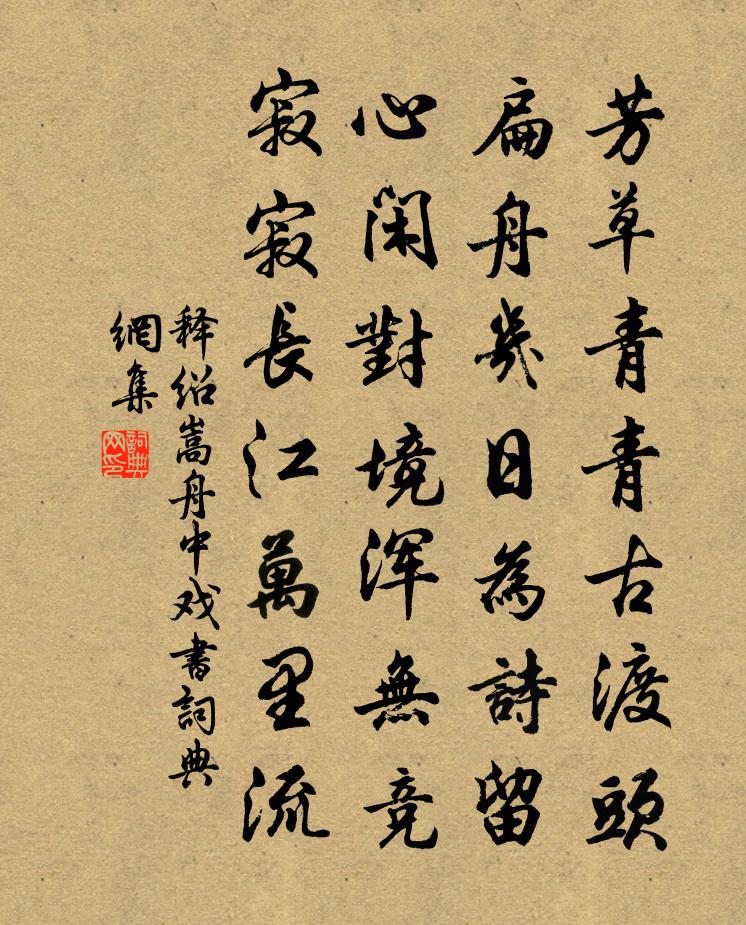 芳草青青古渡頭
扁舟幾日為詩留
心閑對境渾無競
寂寂長江萬里流
释绍嵩舟中戏書詞典
網集
詞典
网印